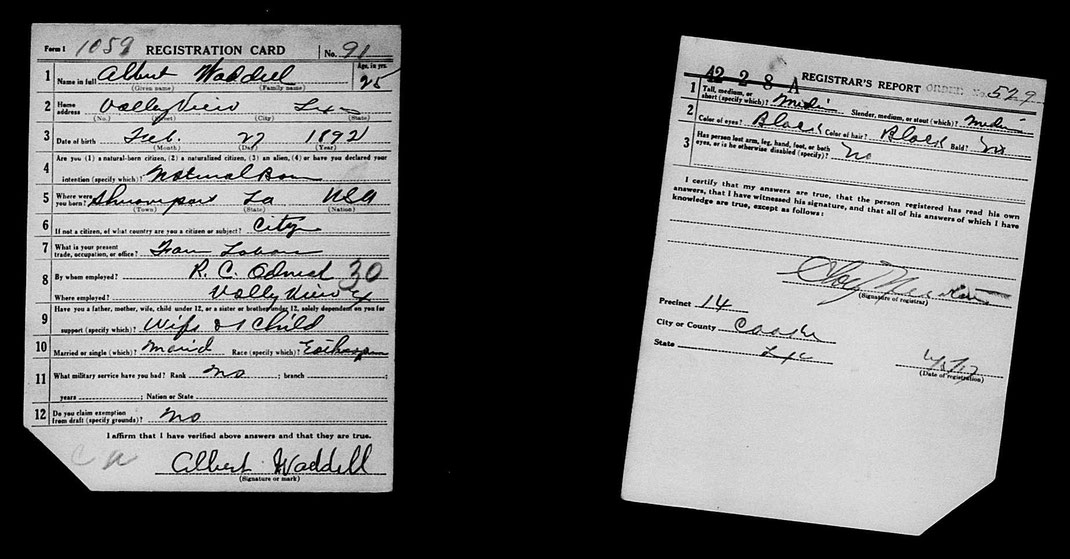 Form 1 1059 REGISTRATION CARD No. 91
1 Name in full Albert Waddell Age, in yrs. 25
(Given name) (Family name)
2 Home address Vally View Tex
(No.) (Street) (City) (State)
3 Date of birth Feb. 27 1892
(Month) (Day) (Year)
4 Are you (1) a natural-born citizen, (2) a naturalized citizen, (3) an alien, (4) or have you declared your
intention (specify which)? Natural Born
5 Where were you born? La USA
(Town) (State) (Nation)
6 If not a citizen, of what country are you a citizen or subject?
7 What is your present trade, occupation, or office? Farm Labor
8 By whom employed? R. C. 30
Where employed? Vally View
9 Have you a father, mother, wife, child under 12, or a sister or brother under 12, solely dependent on you for
support (specify which)? Wife & Child
10 Married or single (which)? Race (specify which)?
11 What military service have you had? Rank No ; branch ;
years ; Nation or State
12 Do you claim exemption from draft (specify grounds)? No
I affirm that I have verified above answers and that they are true.
Albert Waddell
(Signature or mark)
42 2 8 A REGISTRAR'S REPORT ORDER No. 529
1 Tall, medium, or short (specify which)? Medi Slender, medium, or stout (which)? Medi
2 Color of eyes? Black Color of hair? Black Bald? No
3 Has person lost arm, leg, hand, foot, or both eyes, or is he otherwise disabled (specify)? No
I certify that my answers are true, that the person registered has read his own
answers, that I have witnessed his signature, and that all of his answers of which I have
knowledge are true, except as follows:
(Signature of registrar)
Precinct 14
City or County Cooke
State Tex
(Date of registration)